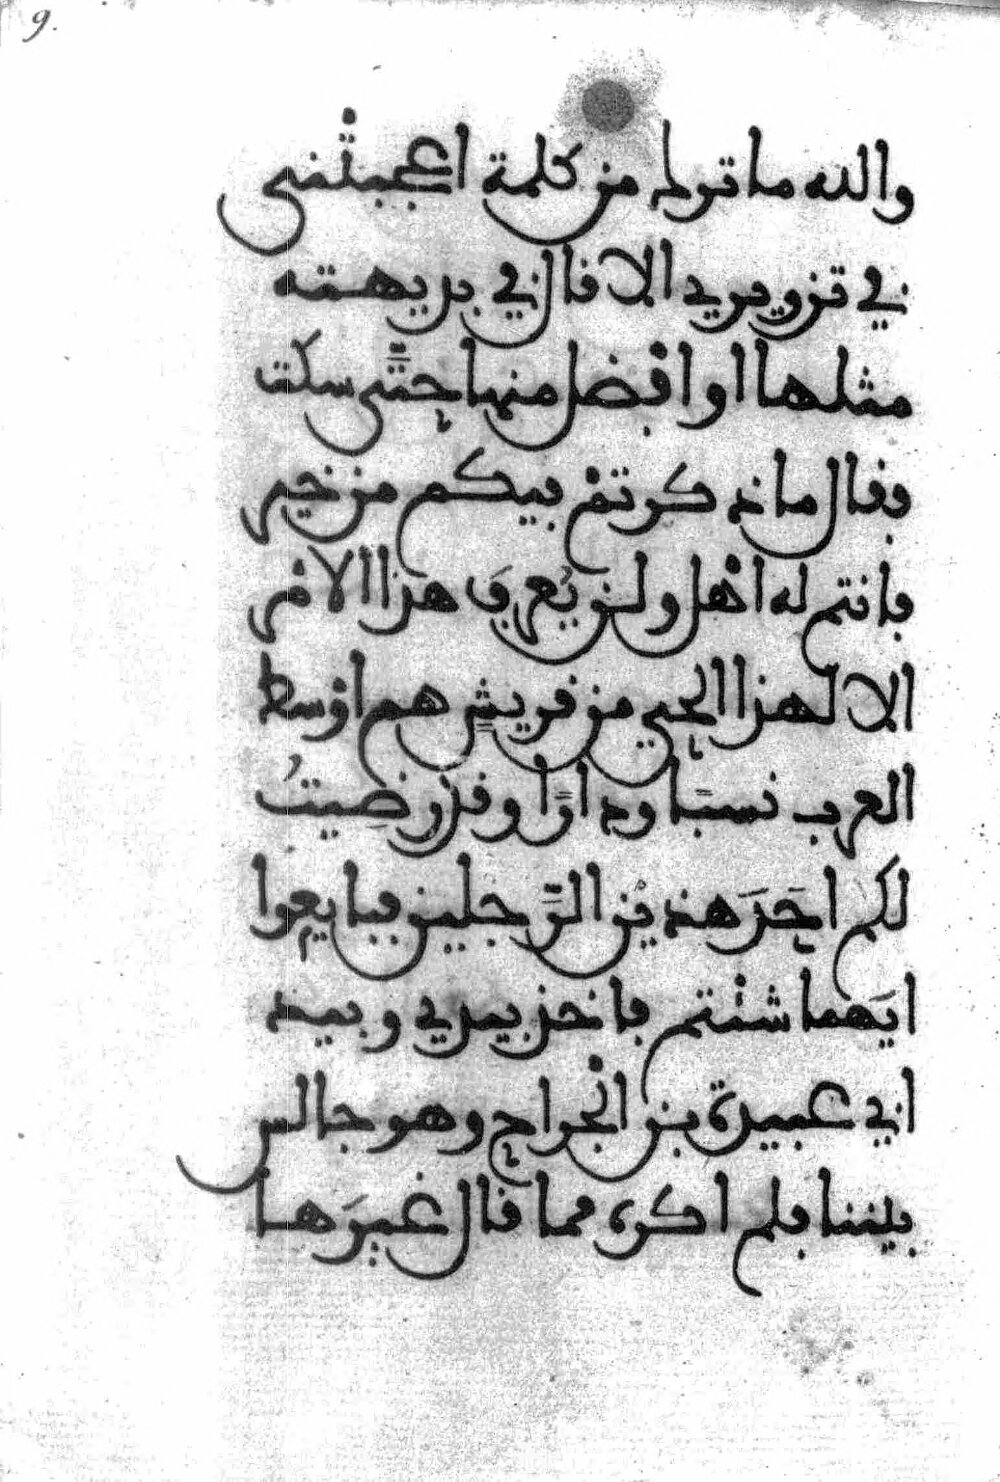 9.
والله ما ترك من كلمة اعجبتْني
في تزويري الا قال في بديهته
مثلها او افْضل منها حتّى سكت
فقال ما ذكرتمْ فيكم من خير
فانتم له اهْل ولن يُعرفَ هَذا الامْر
الا لهذا الحي من قريشٍ هم اوْسط
العرب نسبًا ودارًا وقد رَضِيتُ
لكم احَدَ هذيْن الرَّجلين فبايعوا
ايَهما شئْتم فاخذ بيدي وبيد
ابي عبيدة بن الْجراح وهو جالس
بيننا فلم اكره مما قال غيرَها